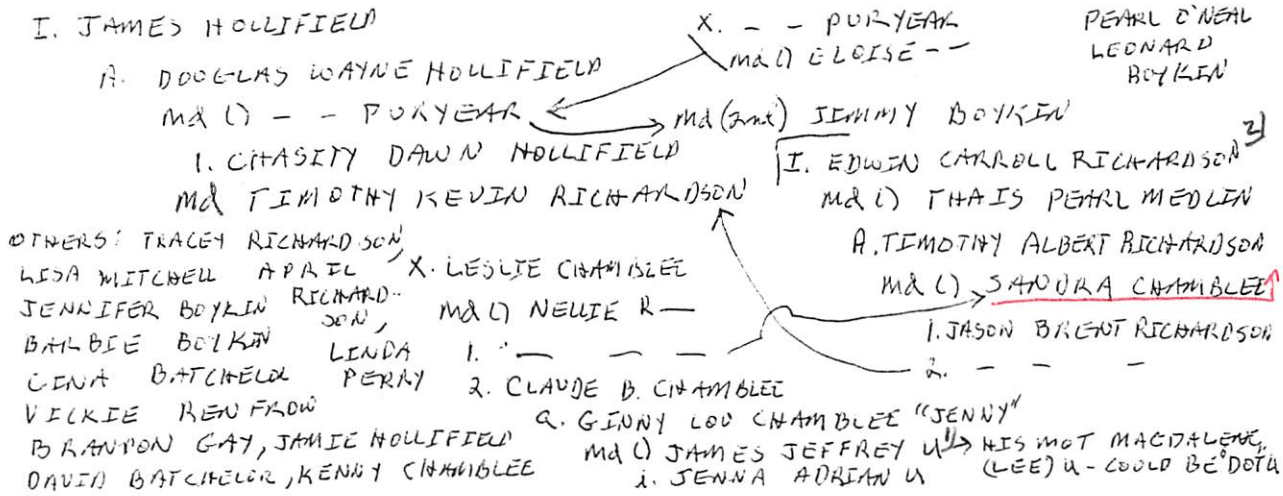 I. JAMES HOLLIFIELD
A. DOUGLAS WAYNE HOLLIFIELD
md () - - PURYEAR
1. CHASITY DAWN HOLLIFIELD
md TIMOTHY KEVIN RICHARDSON
X. - - PURYEAR
md () ELOISE - -
PEARL O'NEAL
LEONARD
BOYKIN
md (2nd) JIMMY BOYKIN
I. EDWIN CARROLL RICHARDSON
md () THAIS PEARL MEDLIN
A. TIMOTHY ALBERT RICHARDSON
md () SANDRA CHAMBLEE
1. JASON BRENT RICHARDSON
2. - - -
OTHERS: TRACEY RICHARDSON,
LISA MITCHELL APRIL
JENNIFER BOYKIN RICHARD-
SON,
BARBIE BOYKIN LINDA
LINA BATCHELOR PERRY
VICKIE RENFROW
BRANDON GAY, JAMIE HOLLIFIELD
DAVID BATCHELOR, KENNY CHAMBLEE
X. LESLIE CHAMBLEE
md () NELLIE R—
1. — — —
2. CLAUDE B. CHAMBLEE
a. GINNY LOU CHAMBLEE "JENNY"
md () JAMES JEFFREY U
i. JENNA ADRIAN U
HIS MOT MAGDALENE
(LEE) U - COULD BE DOTU